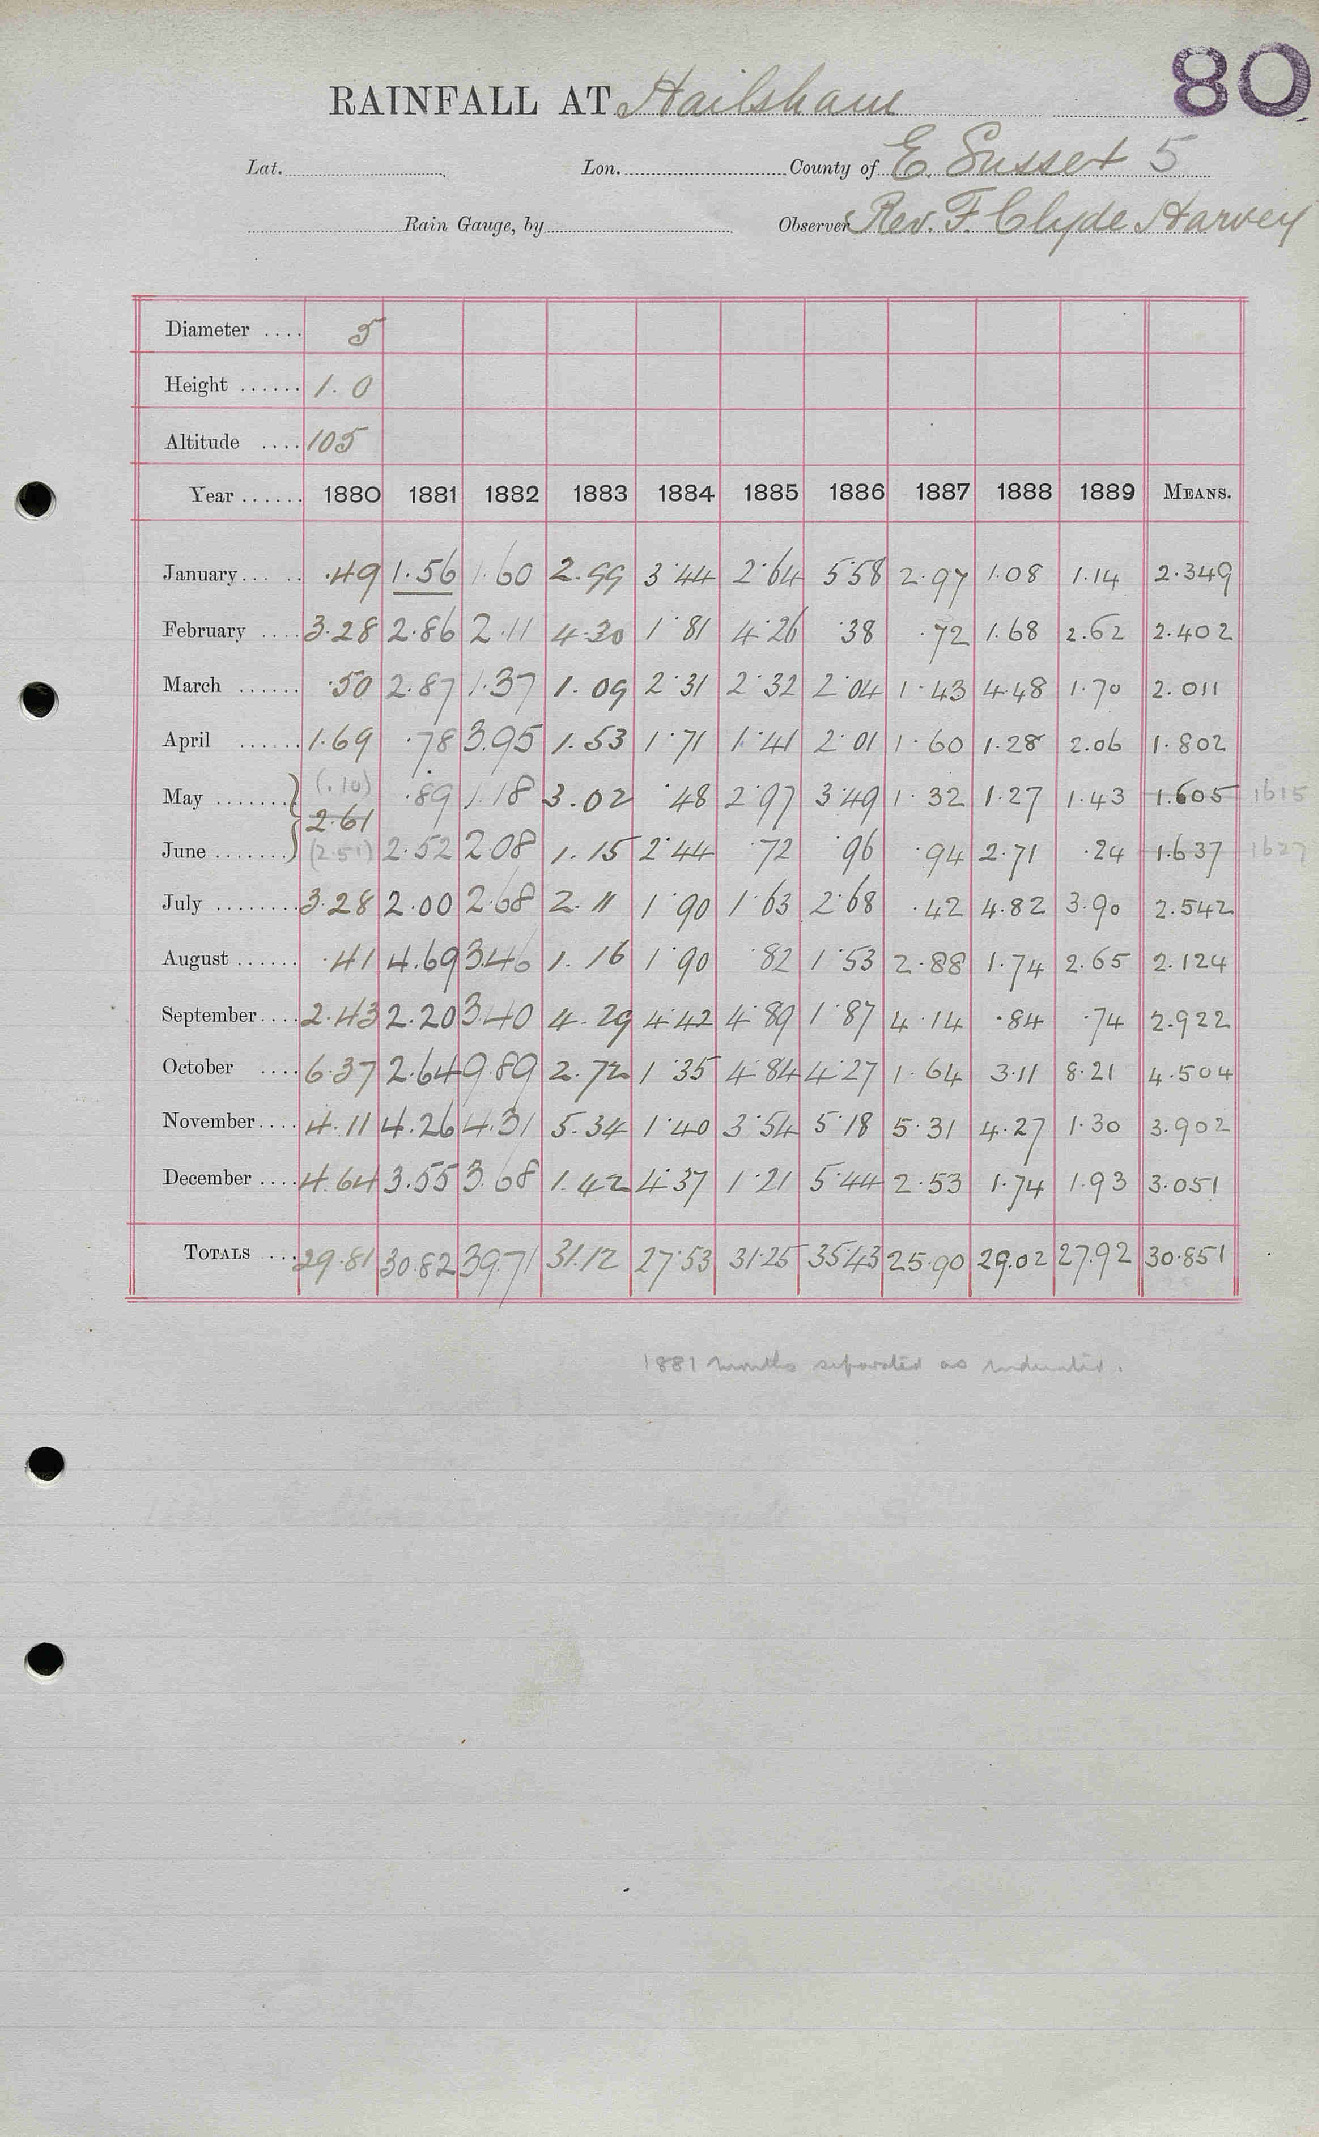 80
RAINFALL AT Hailsham
Lat. Lon. County of E. Sussex 5
Rain Gauge, by Observer Rev. F. Clyde Harvey
Diameter .... 5
Height ...... 1.0
Altitude .... 105
Year ...... 1880 1881 1882 1883 1884 1885 1886 1887 1888 1889 MEANS.
January... .. .49 1.56 1.60 2.99 3.44 2.64 5.58 2.97 1.08 1.14 2.349
February .... 3.28 2.86 2.11 4.30 1.81 4.26 .38 .72 1.68 2.62 2.402
March ...... .50 2.87 1.37 1.09 2.31 2.32 2.04 1.43 4.48 1.70 2.011
April ...... 1.69 .78 3.95 1.53 1.71 1.41 2.01 1.60 1.28 2.06 1.802
May ....... (.10) .89 1.18 3.02 .48 2.97 3.49 1.32 1.27 1.43 1.605 1615
2.61
June ....... (2.51) 2.52 2.08 1.15 2.44 .72 .96 .94 2.71 .24 1.637 1627
July ........ 3.28 2.00 2.68 2.11 1.90 1.63 2.68 .42 4.82 3.90 2.542
August ...... .41 4.69 3.46 1.16 1.90 .82 1.53 2.88 1.74 2.65 2.124
September .... 2.43 2.20 3.40 4.29 4.42 4.89 1.87 4.14 .84 .74 2.922
October .... 6.37 2.64 9.89 2.72 1.35 4.84 4.27 1.64 3.11 8.21 4.504
November .... 4.11 4.26 4.31 5.34 1.40 3.54 5.18 5.31 4.27 1.30 3.902
December .... 4.64 3.55 3.68 1.42 4.37 1.21 5.44 2.53 1.74 1.93 3.051
TOTALS ... 29.81 30.82 39.71 31.12 27.53 31.25 35.43 25.90 29.02 27.92 30.851
1881 months separated as indicated.